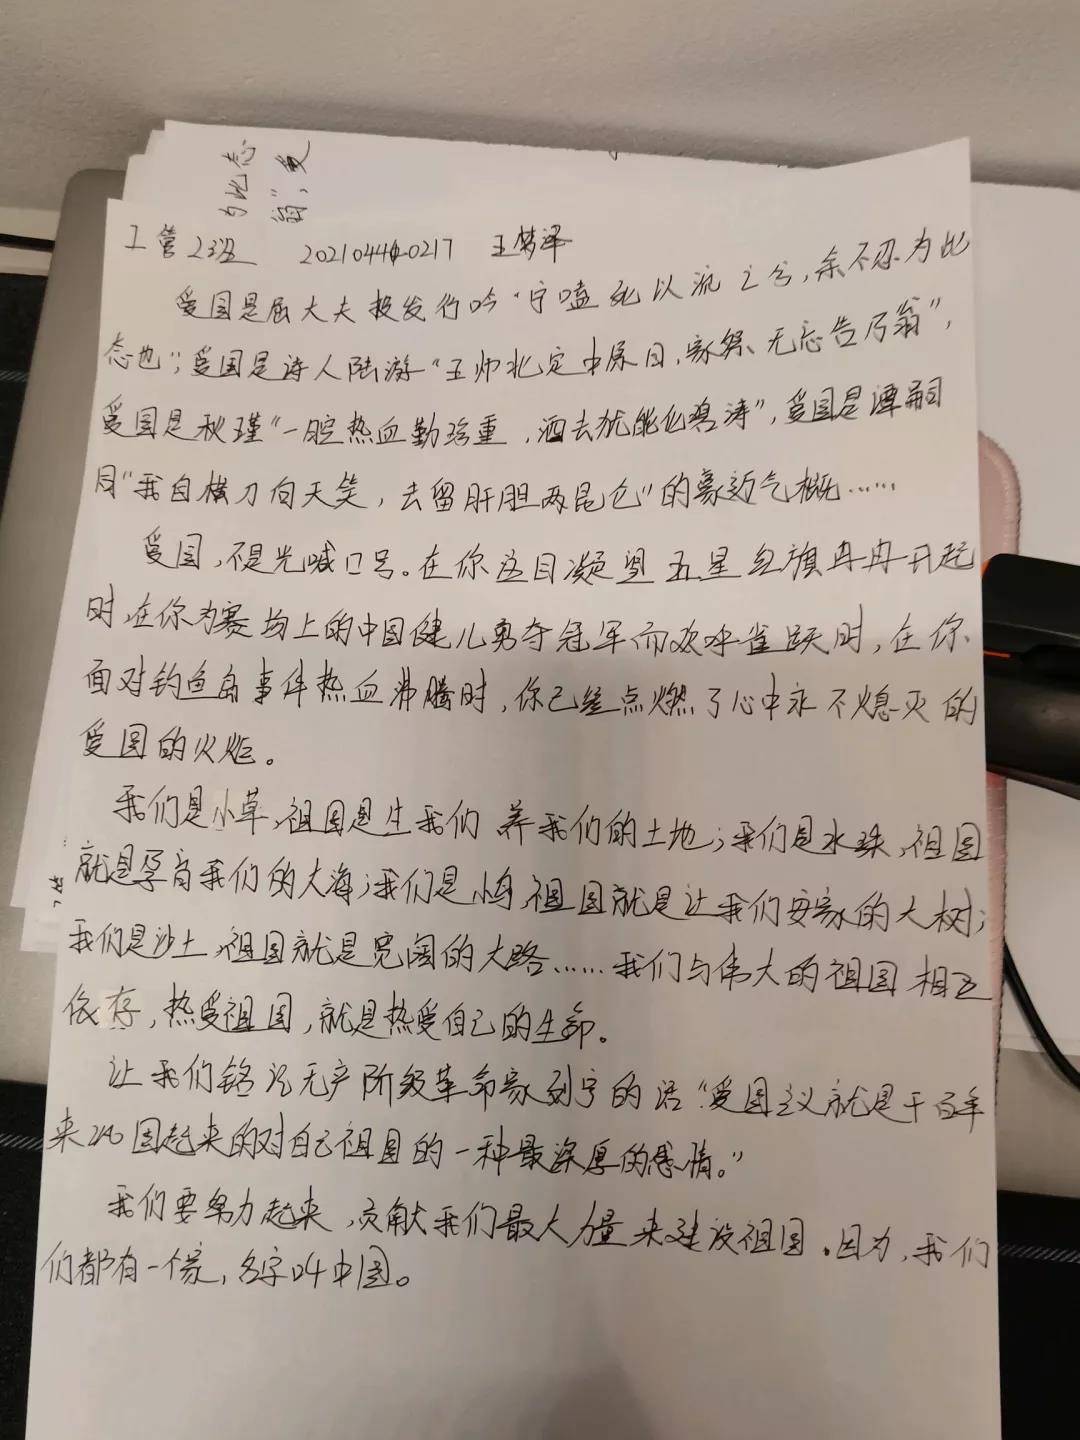 为此态
翁”,爱
工管23班 20210440217 王梦泽
爱国是屈大夫披发行吟“宁嗑死以流之兮,余不忍为此
态也”;爱国是诗人陆游“王师北定中原日,家祭无忘告乃翁”,
爱国是秋瑾“一腔热血勤珍重,洒去犹能化碧涛”,爱国是谭嗣
同“我自横刀向天笑,去留肝胆两昆仑”的豪迈气概……
爱国,不是光喊口号。在你注目凝望五星红旗冉冉升起
时,在你为赛场上的中国健儿勇夺冠军而欢呼雀跃时,在你
面对钓鱼岛事件热血沸腾时,你已经点燃了心中永不熄灭的
爱国的火炬。
我们是小草,祖国是生我们养我们的土地;我们是水珠,祖国
就是孕育我们的大海;我们是小鸟,祖国就是让我们安家的大树;
我们是沙土,祖国就是宽阔的大路……我们与伟大的祖国相互
依存,热爱祖国,就是热爱自己的生命。
让我们铭记无产阶级革命家列宁的话“爱国主义就是千百年
来巩固起来的对自己祖国的一种最深厚的感情。”
我们要努力起来,贡献我们最大力量来建设祖国。因为,我们
们都有一个家,名字叫中国。